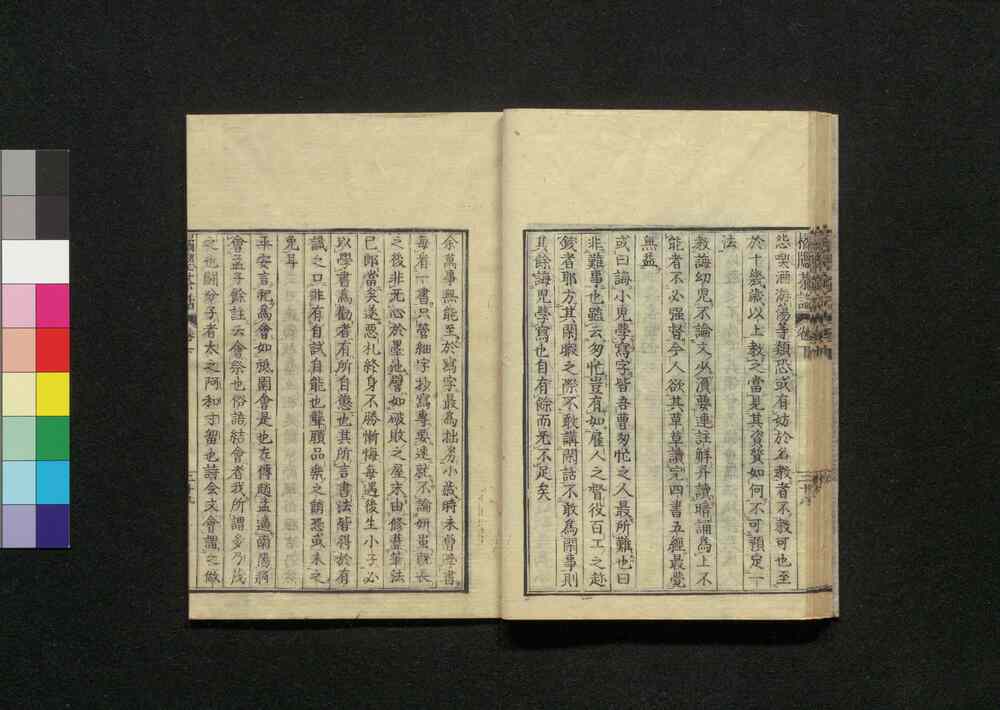 怨契酒海蕩等類恐或有妨於名教者不教可也至
於十幾歲以上教之當見其資質如何不可預定一
法
教誨幼兒不論文必須要連註解并讀暗誦爲上不
能者不必强督今人欲其草草讀完四書五經最覺
無益
或曰誨小兒學寫字皆吾曹匆忙之人最所難也曰
非難事也雖云匆忙豈有如雇人之督役百工之赴
餕者耶方其閑暇之際不敢講閑話不敢爲閑事則
其餘誨兒學寫也自有餘而无不足矣
余萬事無能至於寫字最爲拙劣小歲時未曾學書
每者一書只管細字抄寫專要速就不論妍蚩旣長
之後非无心於墨池譬如破敗之屋末由修葺筆法
已郎當矣遂惡札終身不勝慚悔每遇後生小子必
以學書爲勸者有所自懲也其所言書法皆得於有
識之口非有自試自能也聲願品樂之誚恐或未之
免耳
平安言祀爲會如祇園會是也左傳趙孟適南陽將
會孟子餘註云會祭也俗語結會者我所謂多乃茂
之也鬮分子者太之阿和寸畱也詩会文會謂之做